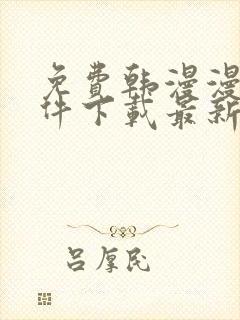 免费韩漫漫
件下载最新
吕厚民